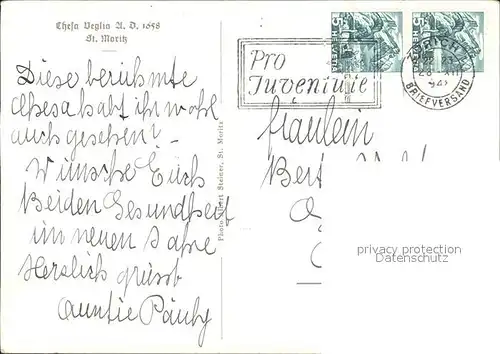 Chesa Veglia A. D. 1658
St. Moritz
Diese berühmte
Chesa habt ihr wohl
auch gesehen?
Wünsche Euch
Beiden Gesundheit
im neuen Jahre
Herzlich grüsst
Auntie Pauly
Photo Albert Steiner, St. Moritz
Pro
Juventute
HELVETIA
HELVETIA
ZÜRICH
BRIEFVERSAND
Fräulein
privacy protection
Datenschutz